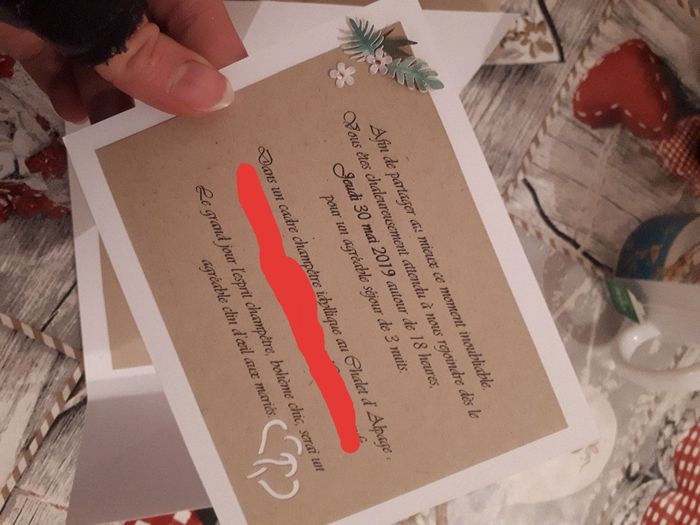 Afin de partager au mieux ce moment inoubliable,
Vous êtes chaleureusement attendu à nous rejoindre dès le
Jeudi 30 mai 2019 autour de 18 heures,
pour un agréable séjour de 3 nuits.
Dans un cadre champêtre idyllique au Chalet d'Alpage,
Le grand jour l'esprit champêtre, bohème chic, serai un
agréable clin d'œil aux mariés.